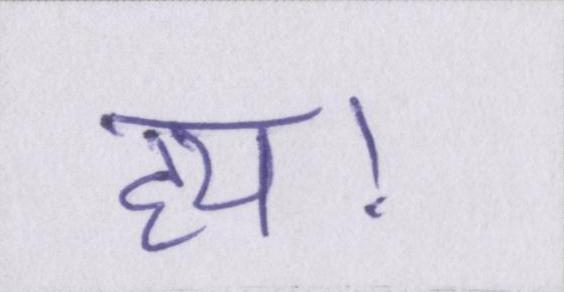 हय!